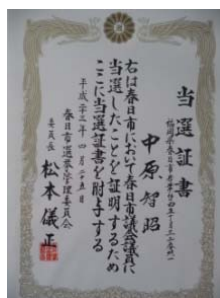 当選証書
中原智昭
右は春日市において春日市議会議員に
当選したことを証明するため
ここに当選証書を附与する
平成二十三年四月二十五日
春日市選挙管理委員会
委員長 松本儀正